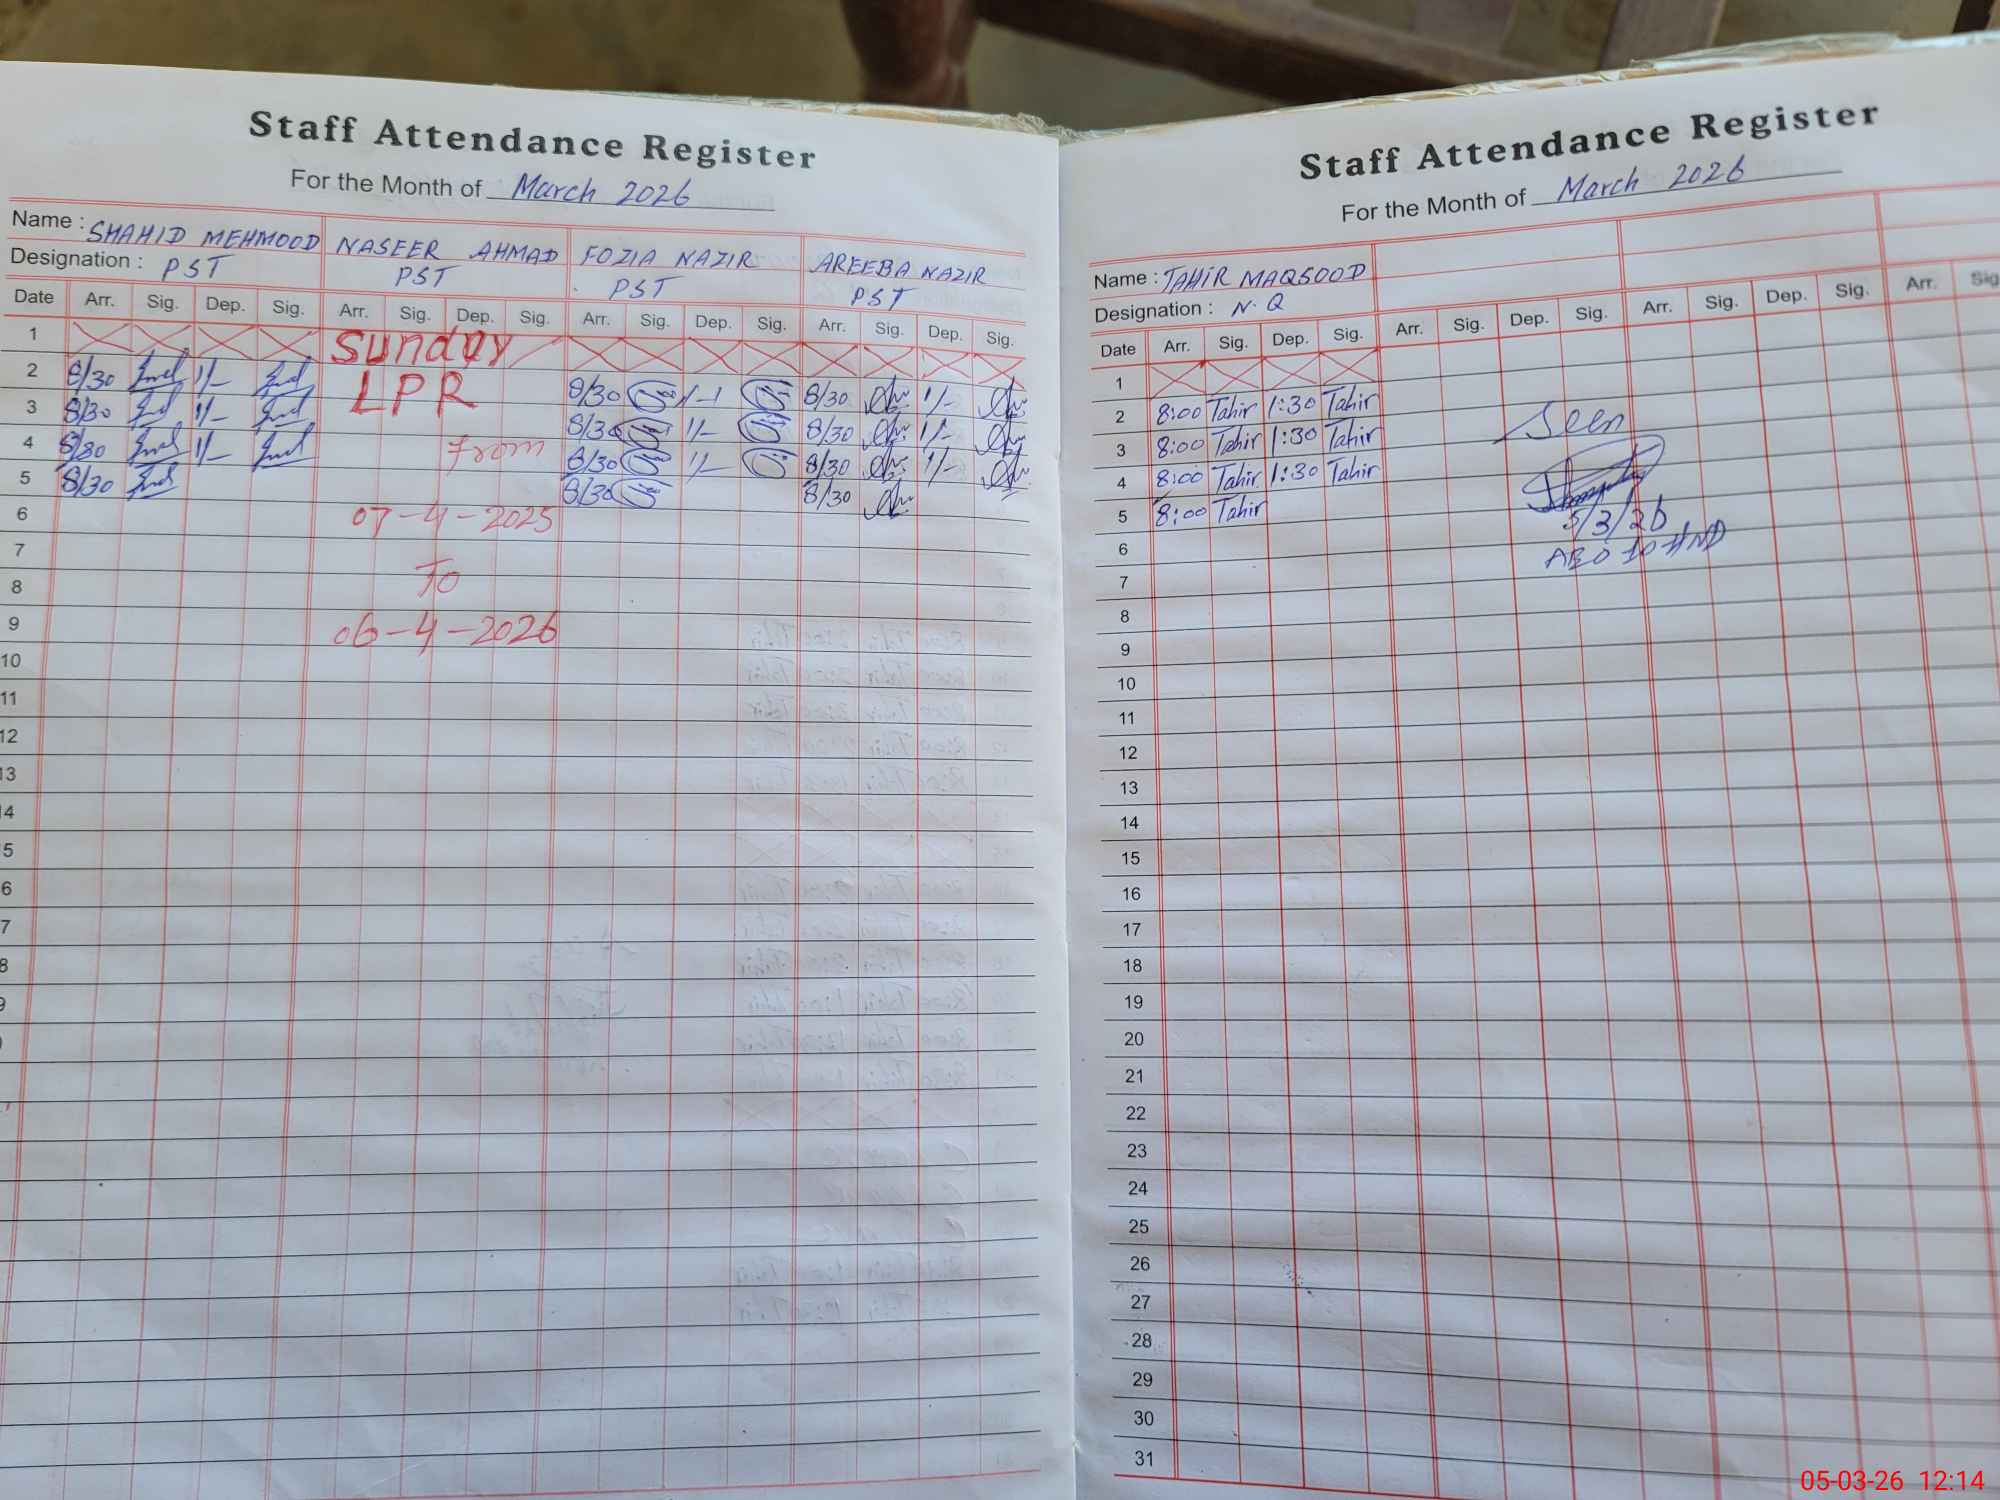 Staff Attendance Register
For the Month of March 2026
Name : SHAHID MEHMOOD NASEER AHMAD FOZIA NAZIR AREEBA NAZIR
Designation : PST PST PST PST
Date Arr. Sig. Dep. Sig. Arr. Sig. Dep. Sig. Arr. Sig. Dep. Sig. Arr. Sig. Dep. Sig.
1 Sunday
2 8/30 1/- LPR 8/30 1/- 8/30 1/-
3 8/30 1/- 8/30 1/- 8/30 1/-
4 8/30 1/- from 8/30 1/- 8/30 1/-
5 8/30 8/30 8/30
6 07-4-2025
7
8 To
9 06-4-2026
10
11
12
13
14
5
6
7
8
9
Staff Attendance Register
For the Month of March 2026
Name : TAHIR MAQSOOD
Designation : N.Q
Date Arr. Sig. Dep. Sig. Arr. Sig. Dep. Sig. Arr. Sig. Dep. Sig. Arr. Sig.
1
2 8:00 Tahir 1:30 Tahir
3 8:00 Tahir 1:30 Tahir Seen
4 8:00 Tahir 1:30 Tahir
5 8:00 Tahir 5/3/26
6
7
8
9
10
11
12
13
14
15
16
17
18
19
20
21
22
23
24
25
26
27
28
29
30
31
05-03-26 12:14